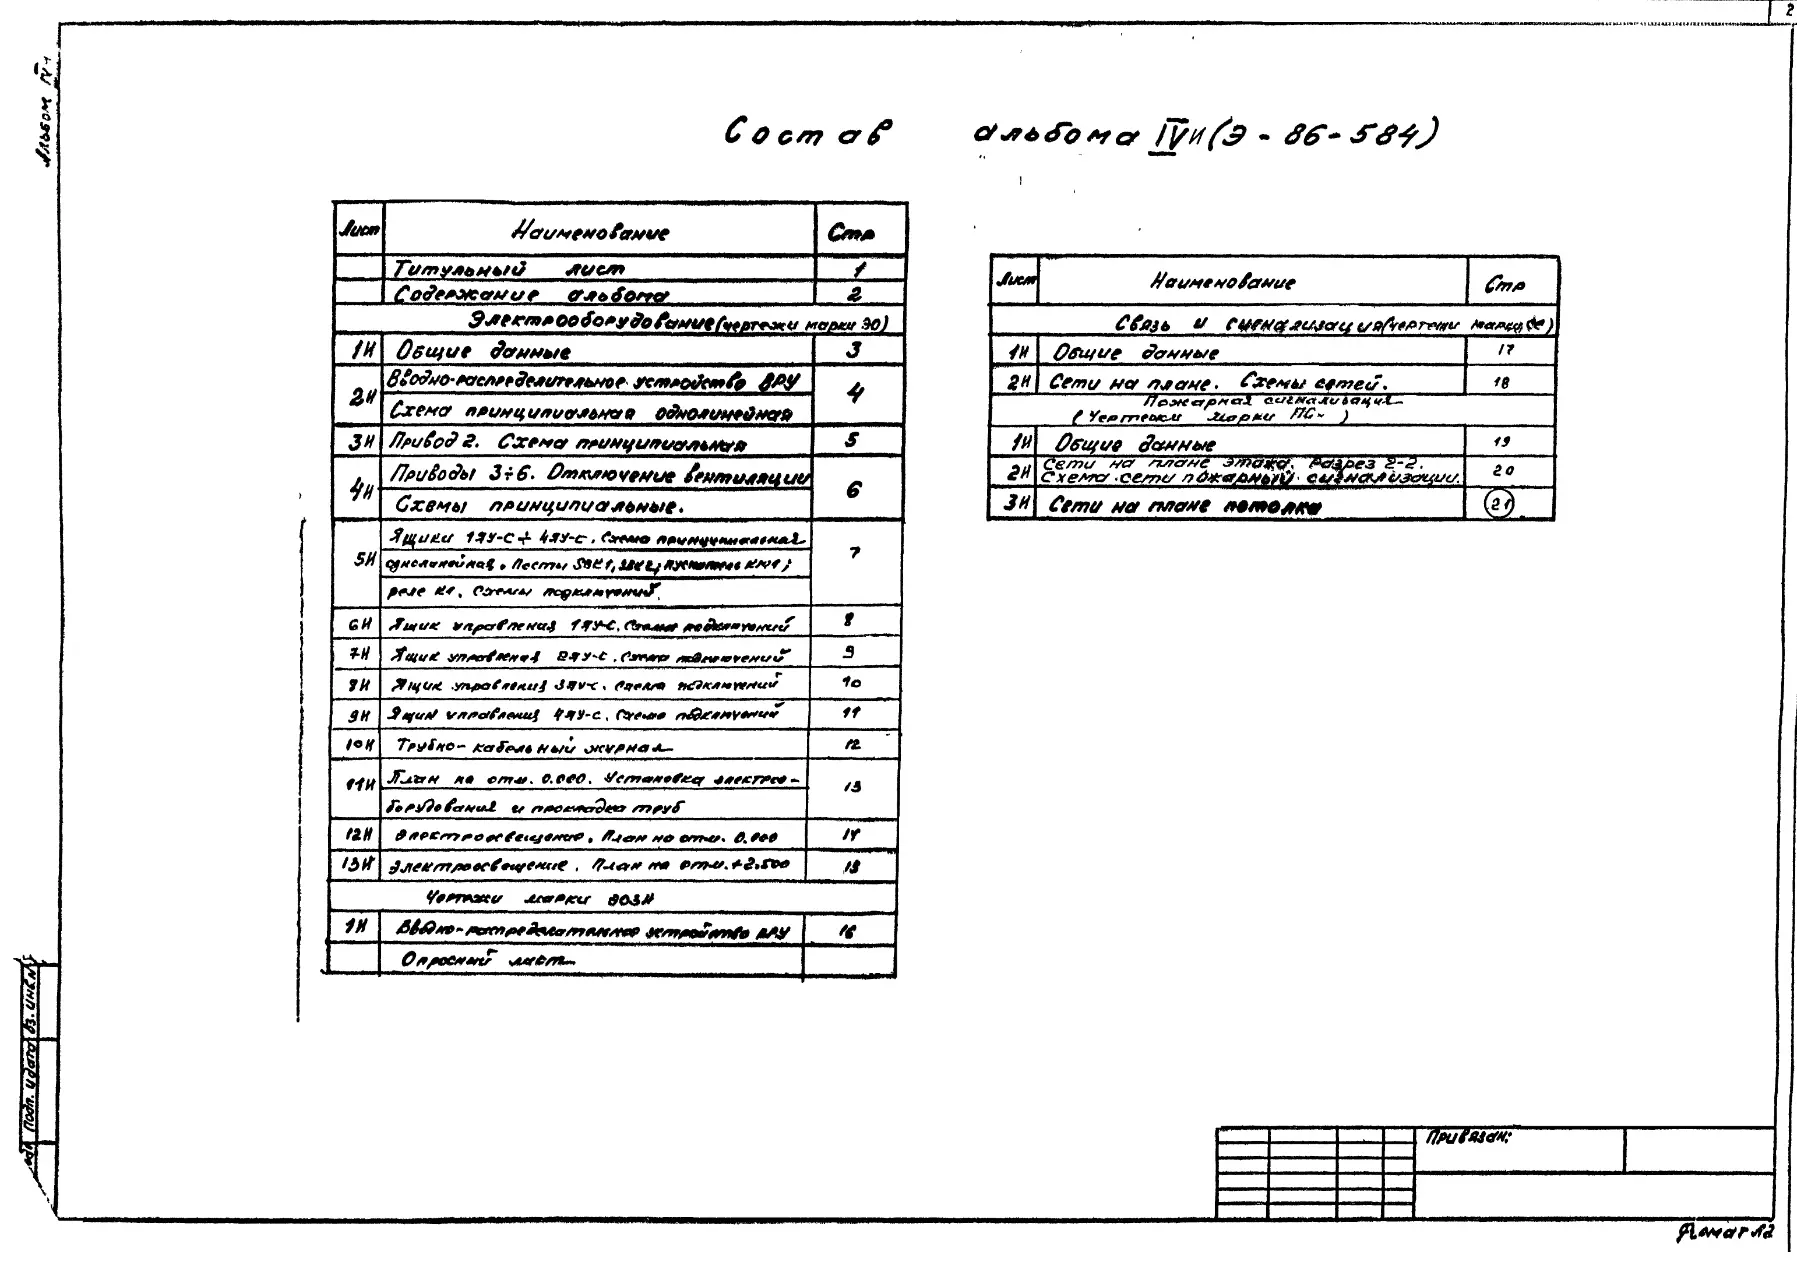 2
Альбом IV-1
Состав альбома IVИ (Э-86-584)
Лист Наименование Стр
Титульный лист 1
Содержание альбома 2
Электрооборудование (чертежи марки ЭО)
1И Общие данные 3
2И Вводно-распределительное устройство ВРУ 4
Схема принципиальная однолинейная
3И Привод 2. Схема принципиальная 5
4И Приводы 3÷6. Отключение вентиляции 6
Схемы принципиальные.
5И Ящики 1ЯУ-С ÷ 4ЯУ-С. Схема принципиальная 7
однолинейная. Посты SBK1, SBK2; пускатель КМ1;
реле К1. Схемы подключений.
6И Ящик управления 1ЯУ-С. Схема подключений 8
7И Ящик управления 2ЯУ-С. Схема подключений 9
8И Ящик управления 3ЯУ-С. Схема подключений 10
9И Ящик управления 4ЯУ-С. Схема подключений 11
10И Трубно-кабельный журнал 12
11И План на отм. 0.000. Установка электрообо- 13
борудования и прокладка труб
12И Электроосвещение. План на отм. 0.000 14
13И Электроосвещение. План на отм. +2.500 15
Чертежи марки ЭОЗИ
1И Вводно-распределительное устройство ВРУ 16
Опросный лист
Лист Наименование Стр
Связь и сигнализация (чертежи марки СС)
1И Общие данные 17
2И Сети на плане. Схемы сетей. 18
Пожарная сигнализация
(Чертежи марки ПС)
1И Общие данные 19
2И Сети на плане этажа. Разрез 2-2. 20
Схема сети пожарный сигнализации.
3И Сети на плане потолка 21
Подп. и дата
Вз. инв. №
Привязан:
Формат А2